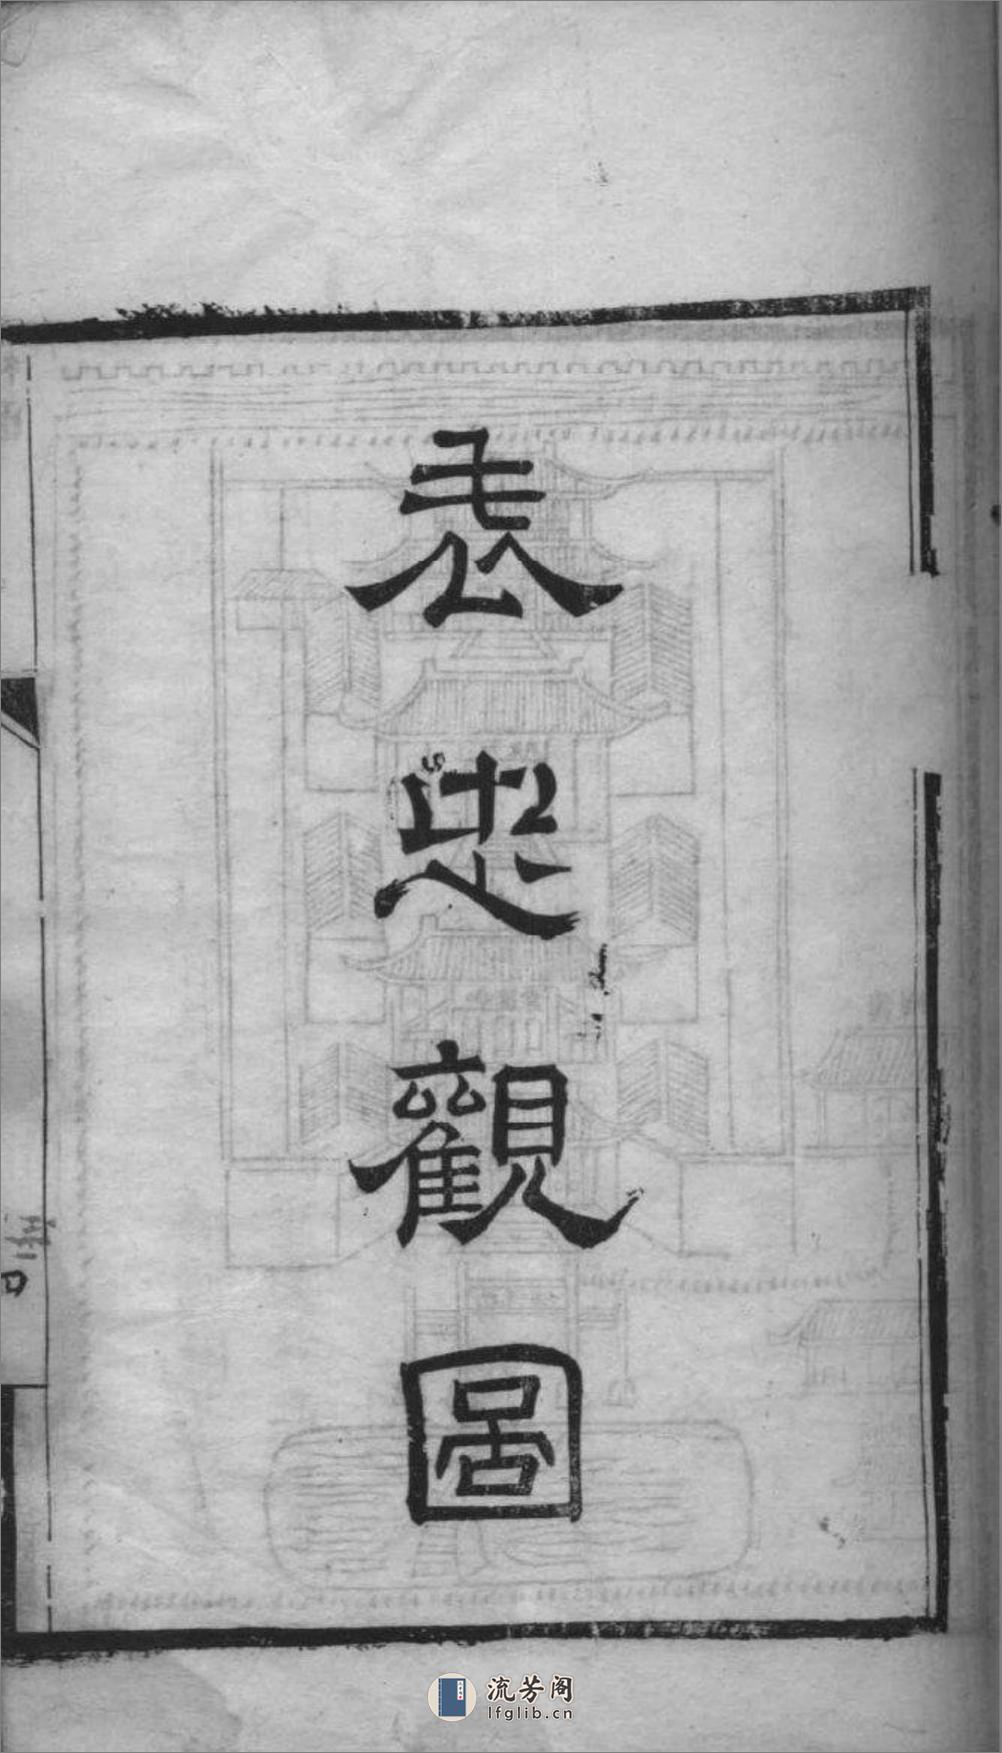 表忠觀圖
流芳阁
lfglib.cn